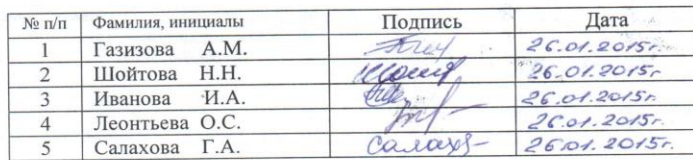 № п/п Фамилия, инициалы Подпись Дата
1 Газизова А.М. 26.01.2015г.
2 Шойтова Н.Н. 26.01.2015г.
3 Иванова И.А. 26.01.2015г.
4 Леонтьева О.С. 26.01.2015г.
5 Салахова Г.А. Салах 26.01.2015г.